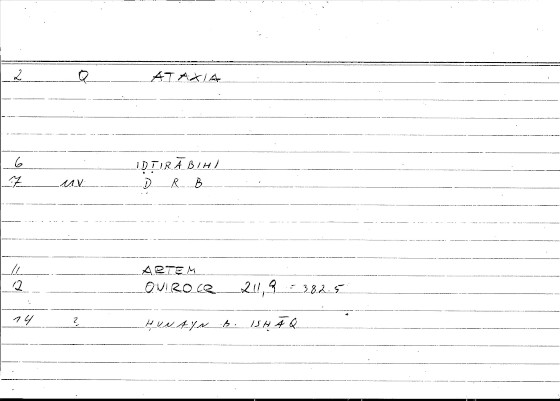 2 Q ATAXIA
6 IḌṬIRĀBIHI
7 MV Ḍ R B
11 ARTEM
12 OVIROCR 211,9 = 382.5
14 ? ḤUNAYN B. ISḤĀQ